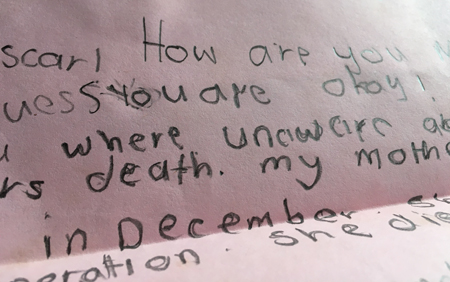 scar! How are you
uess you are okay!
where unaware ab
rs death. my mothe
in December. s
peration. she die